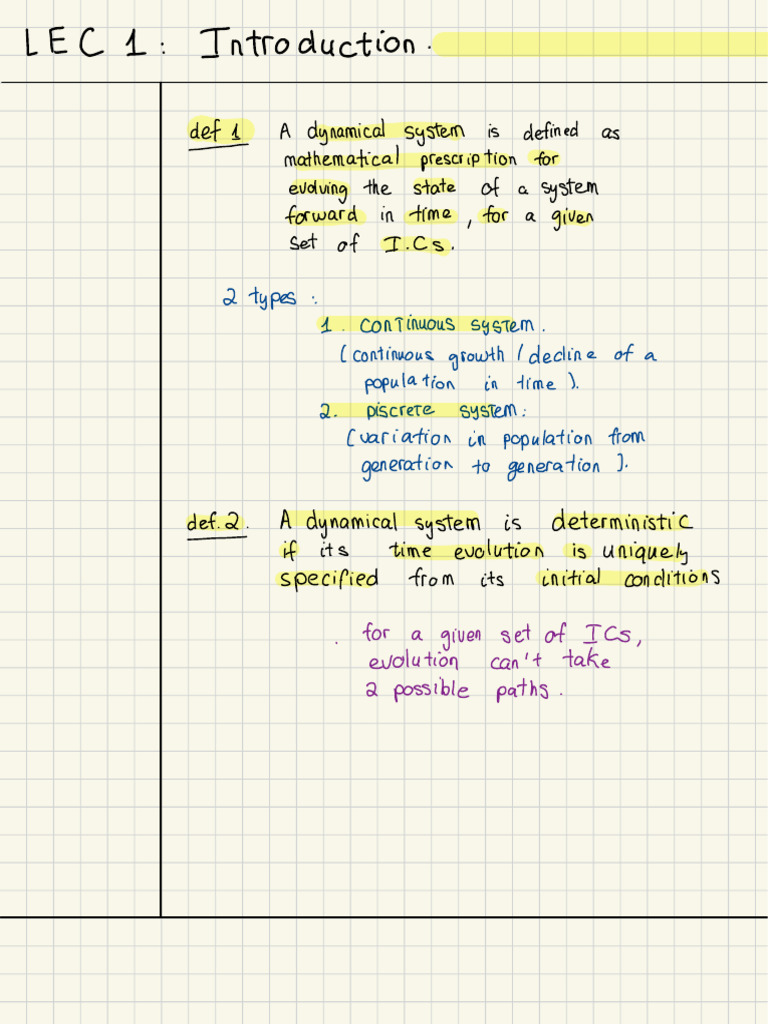 LEC 1: Introduction.
def 1 A dynamical system is defined as
mathematical prescription for
evolving the state of a system
forward in time, for a given
set of I.Cs.
2 types:
1. continuous system.
(continuous growth / decline of a
population in time).
2. Discrete system:
(variation in population from
generation to generation).
def. 2. A dynamical system is deterministic
if its time evolution is uniquely
specified from its initial conditions
. for a given set of ICs,
evolution can't take
2 possible paths.